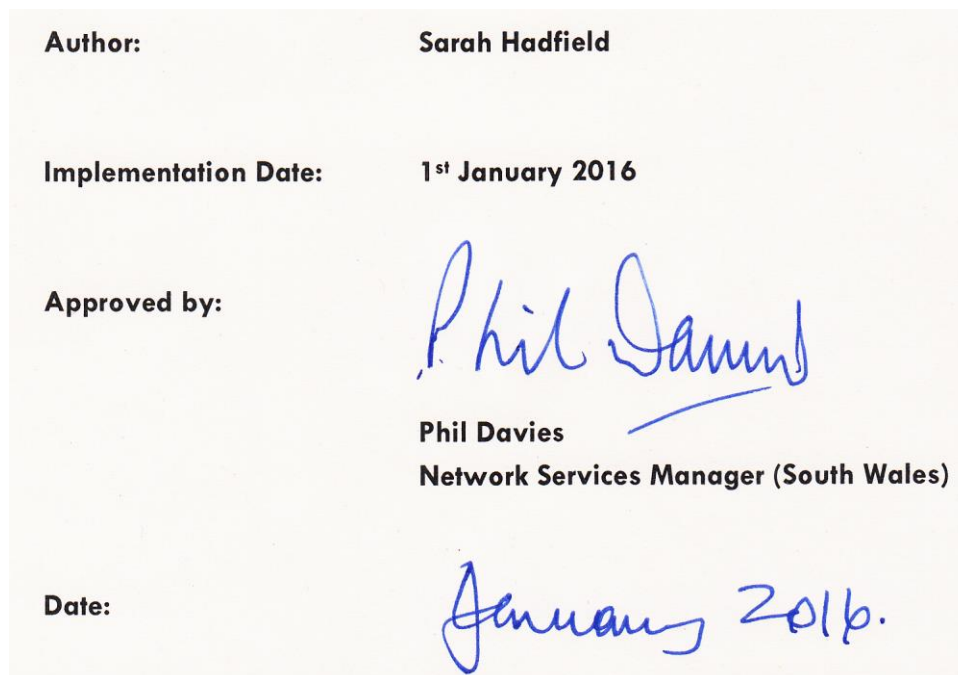 Author: Sarah Hadfield
Implementation Date: 1st January 2016
Approved by: Phil Davies
Phil Davies
Network Services Manager (South Wales)
Date: January 2016.